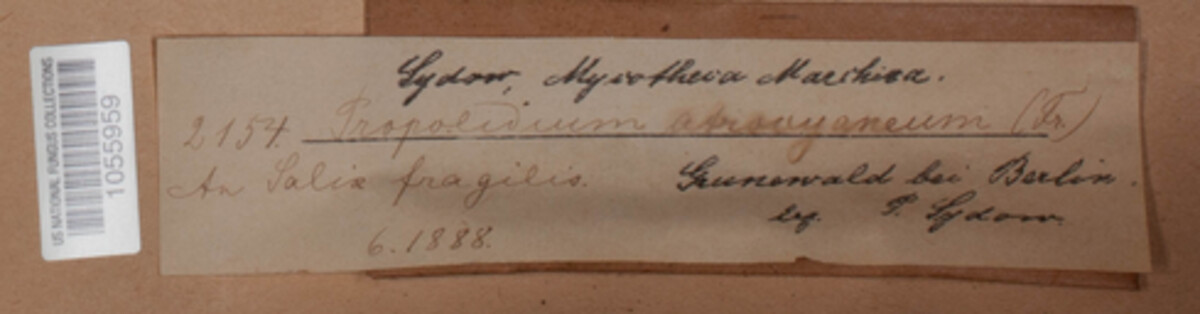 US NATIONAL FUNGUS COLLECTIONS
1055959
Sydow, Mycotheca Marchica.
2154. Propolidium atrocyaneum (Fr.)
An Salix fragilis.
Grunewald bei Berlin.
leg. P. Sydow.
6.1888.